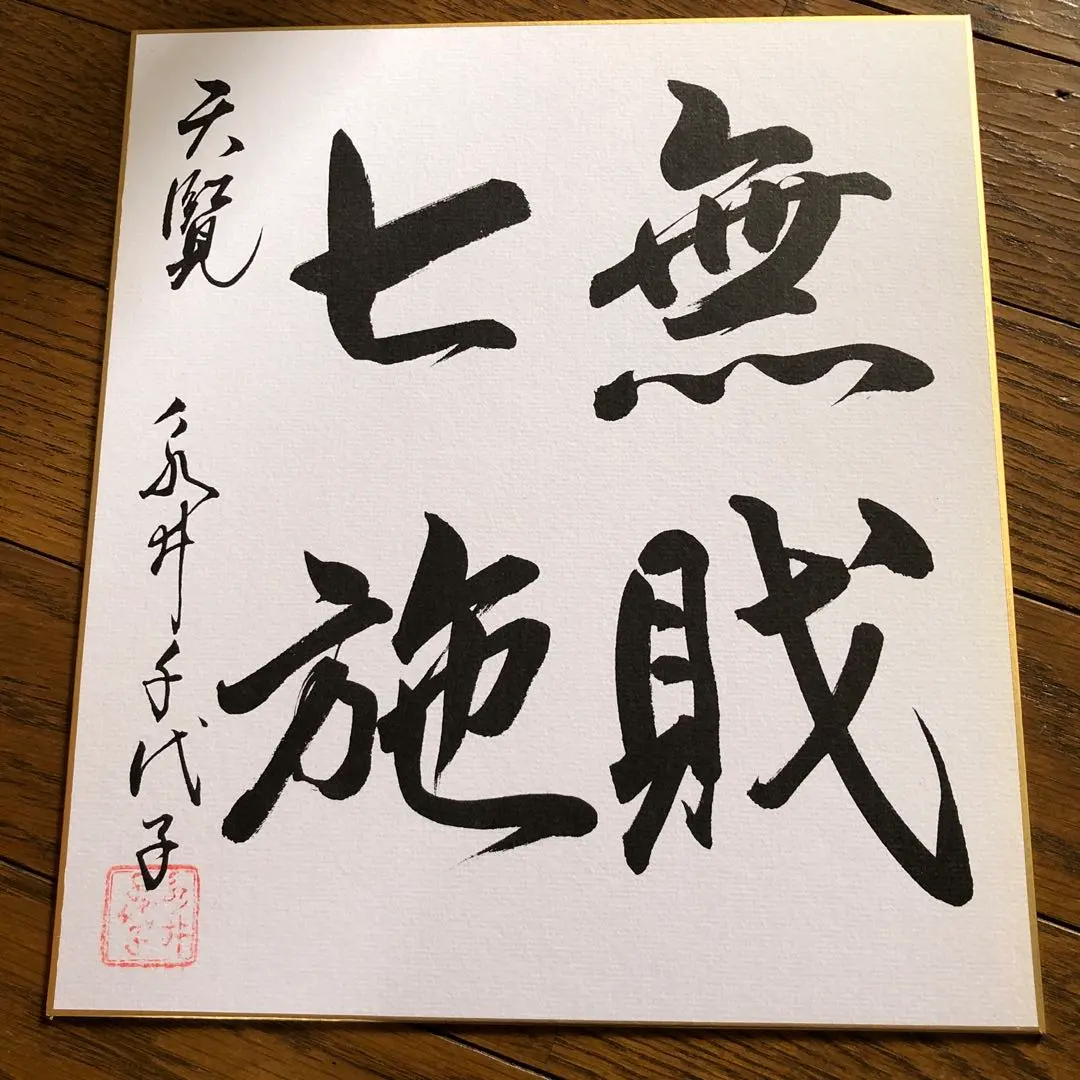 無財
七施
天覧 永井千代子